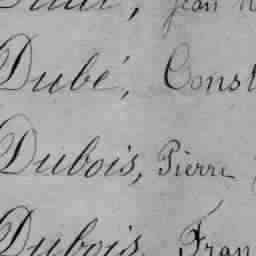 Jean
Dubé, Const
Dubois, Pierre
Dubois, Fran